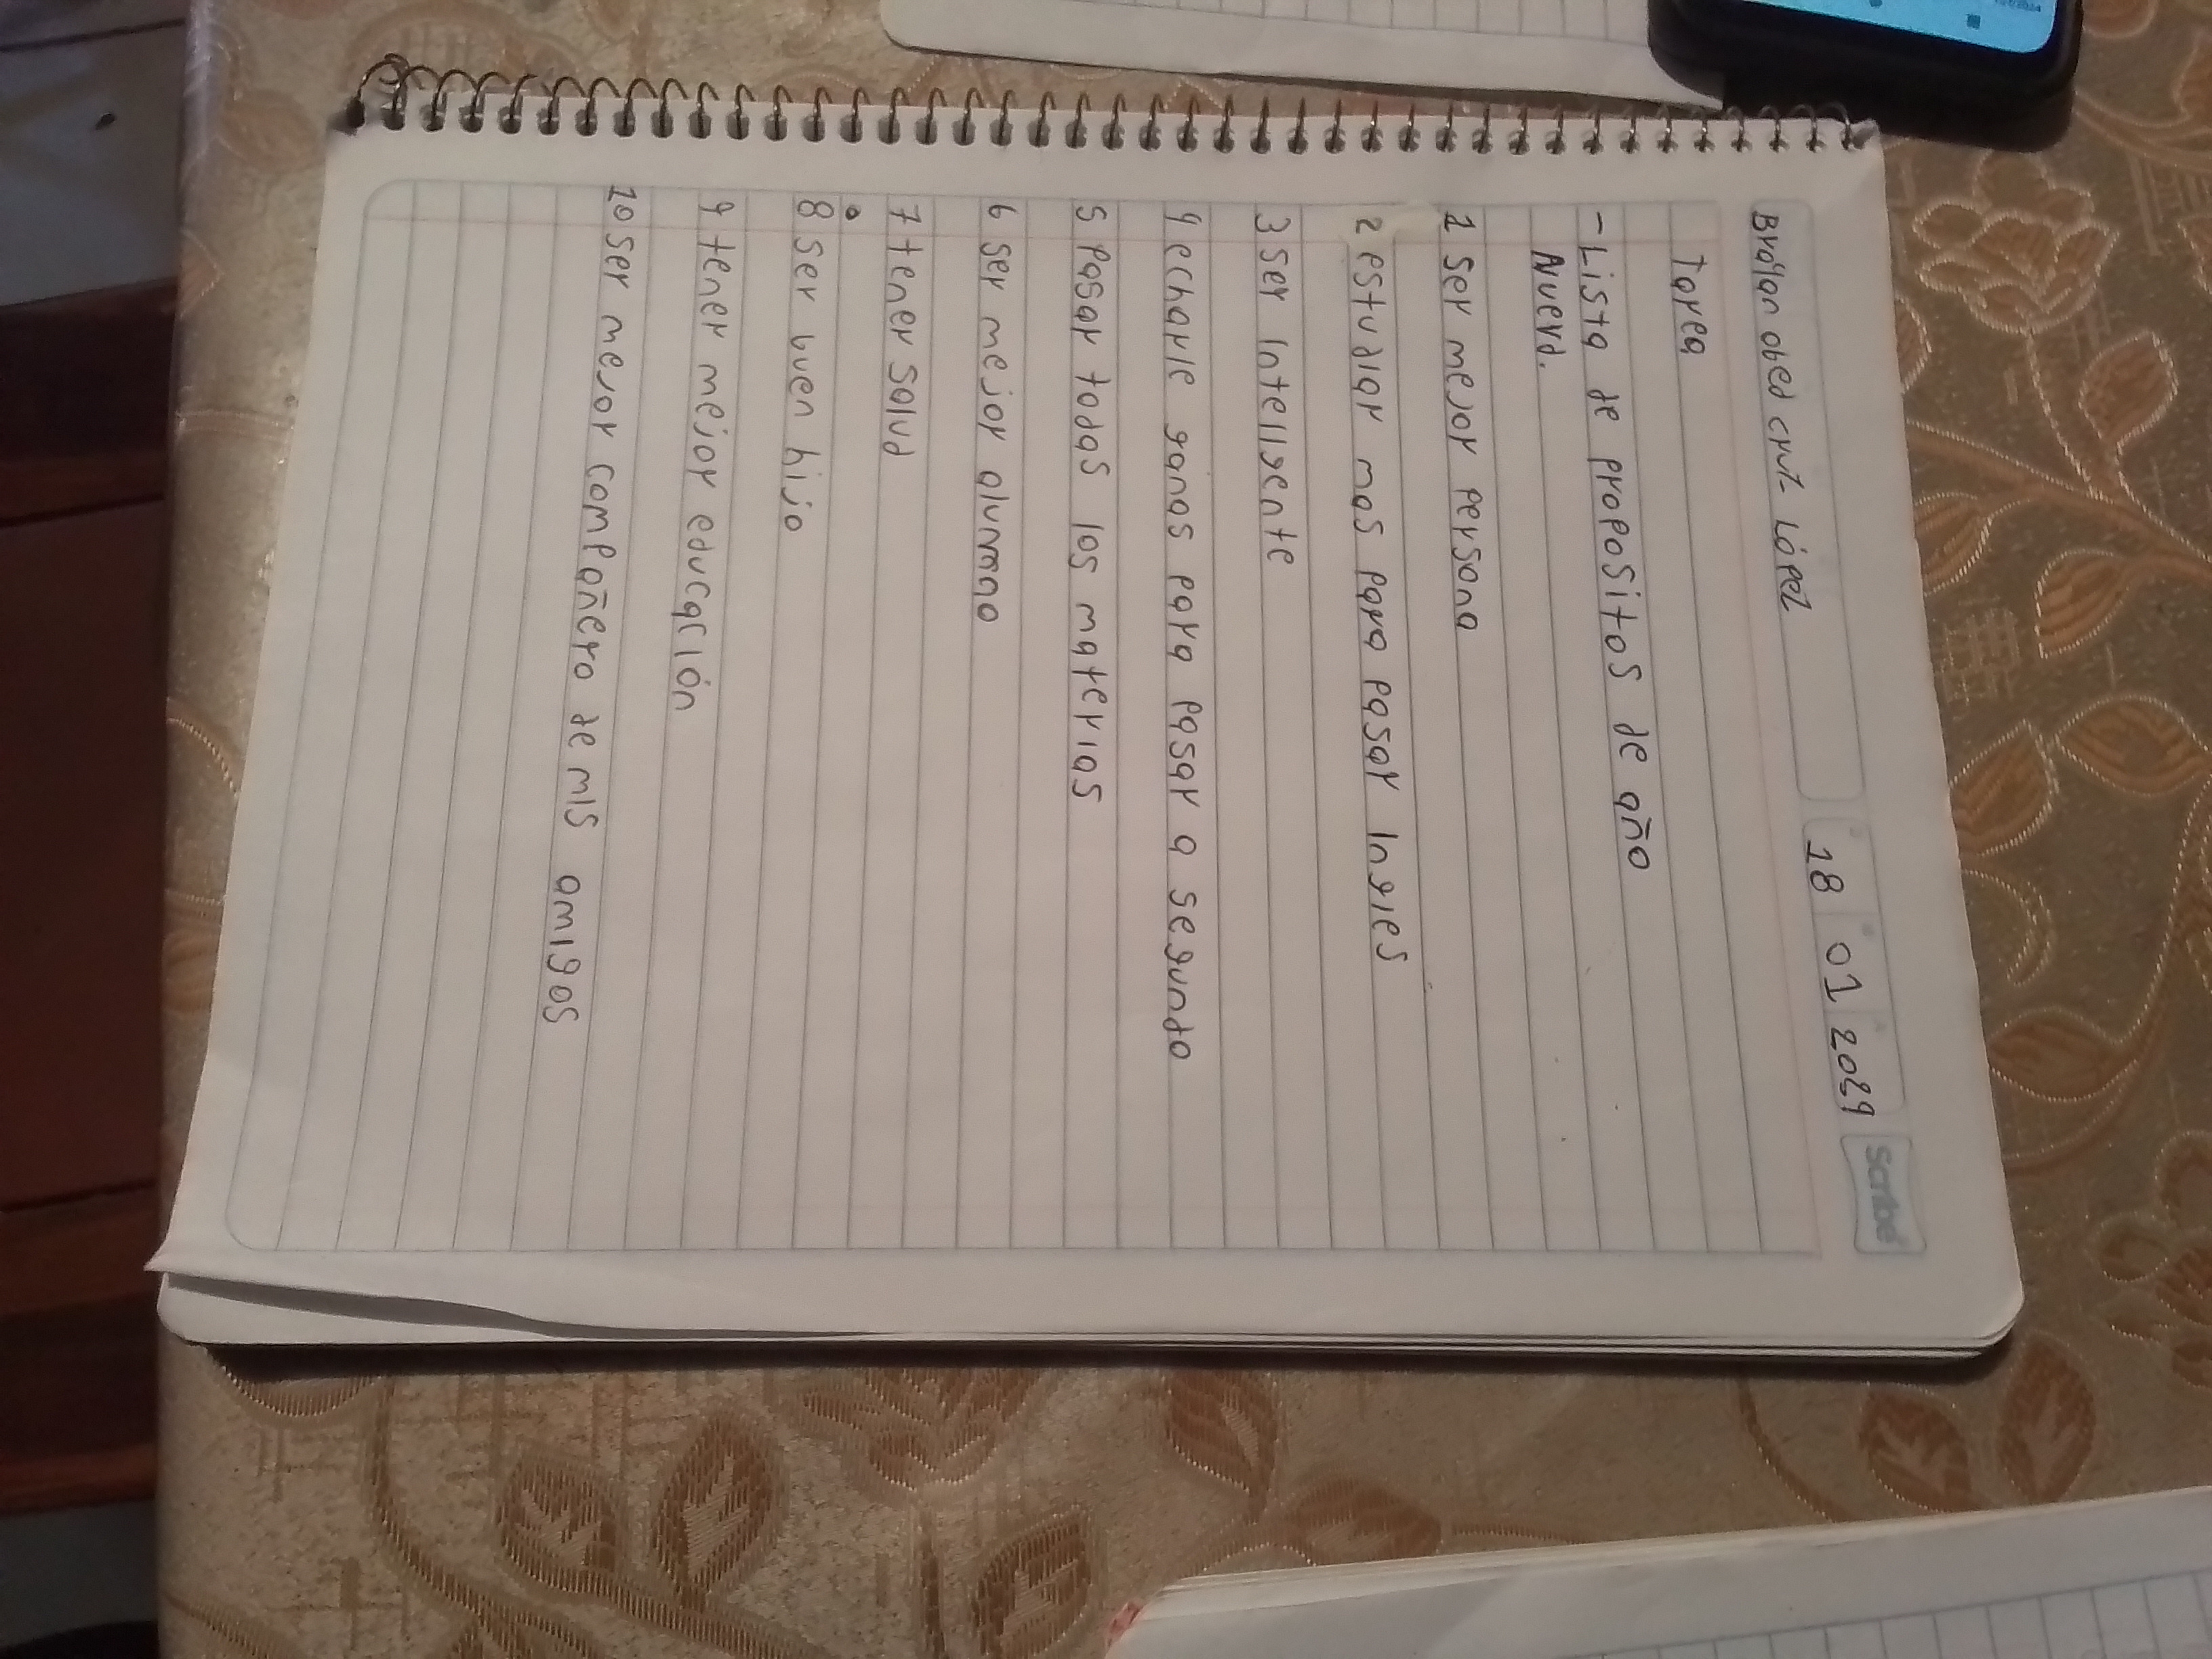 Brayan obed cruz López
18 01 2024
Scribe
Tarea
- Lista de propositos de año
Nuevo.
1 Ser mejor persona
2 estudiar mas para pasar Ingles
3 Ser Inteligente
4 echarle ganas para pasar a segundo
5 Pasar todas las materias
6 ser mejor alumno
7 tener salud
8 ser buen hijo
9 tener mejor educación
10 ser mejor compañero de mis amigos